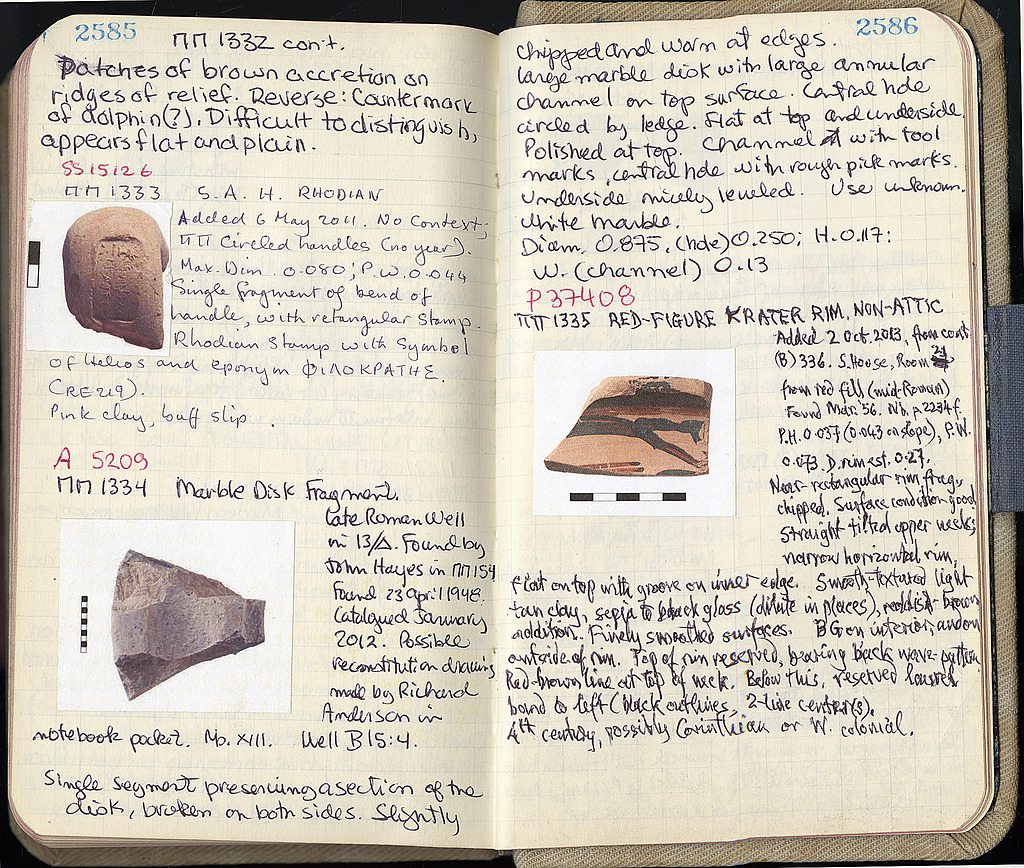 2585
ΠΠ 1332 cont.
Patches of brown accretion on
ridges of relief. Reverse: Countermark
of dolphin(?). Difficult to distinguish,
appears flat and plain.
SS 15126
ΠΠ 1333 S. A. H. RHODIAN
Added 6 May 2011. No Context;
ΠΠ Circled handles (no year).
Max. Dim. 0.080; P.W. 0.044
Single fragment of bend of
handle, with retangular stamp.
Rhodian Stamp with Symbol
of Helios and eponym ΦΙΛΟΚΡΑΤΗΣ.
(RE 219).
Pink clay, buff slip.
A 5209
ΠΠ 1334 Marble Disk Fragment.
Late Roman Well
in 13/Δ. Found by
John Hayes in ΠΠ 154
Found 23 april 1948.
Catalogued January
2012. Possible
reconstitution drawing
made by Richard
Anderson in
notebook pocket. No. XIII. Well B 15:4.
Single segment preserving a section of the
disk, broken on both sides. Slightly
2586
chipped and worn at edges.
large marble disk with large annular
channel on top surface. Central hole
circled by ledge. Flat at top and underside.
Polished at top. Channel with tool
marks, central hole with rough pick marks.
Underside nicely leveled. Use unknown.
White marble.
Diam. 0.875, (hole) 0.250; H. 0.117:
W. (channel) 0.13
P 37408
ΠΠ 1335 RED-FIGURE KRATER RIM, NON-ATTIC
Added 2 Oct. 2013, from cont.
(B) 336. S. House, Room 21
from red fill (mid-Roman)
Found Mdr. '56. Nb. p. 2234f.
P.H. 0.037 (0.043 on slope), P.W.
0.073. D. rim est. 0.27.
Near-rectangular rim frag.,
chipped. Surface condition good
Straight tilted upper neck;
narrow horizontal rim,
flat on top with groove on inner edge. Smooth-textured light
tan clay, sepia to black glass (dilute in places), reddish brown
addition. Finely smoothed surfaces. BG on interior, and on
outside of rim. Top of rim reserved, bearing black wave-pattern
Red-brown line at top of neck. Below this, reserved laurel
band to left (black outlines, 2-line center(s).
4th century, possibly Corinthian or W. colonial.